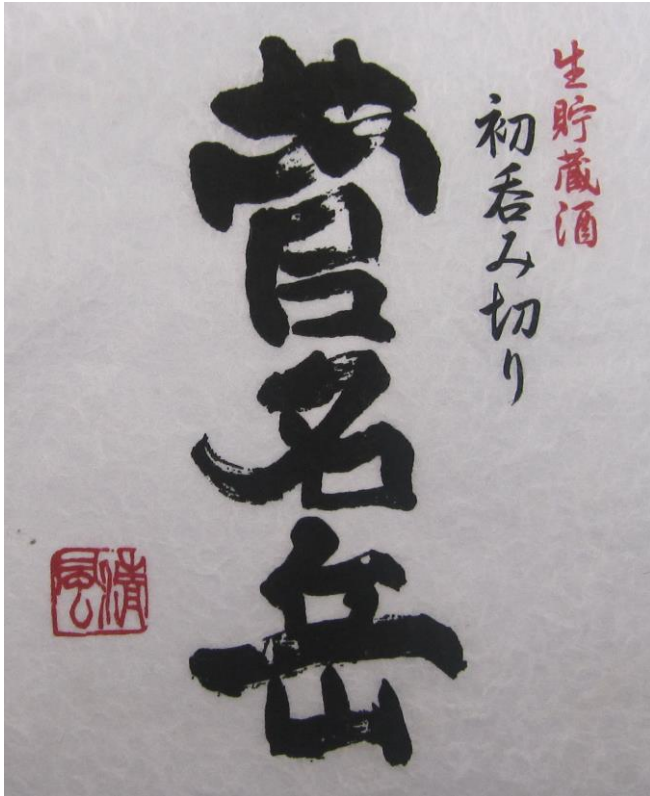 生貯蔵酒
初呑み切り
菅名岳
清風